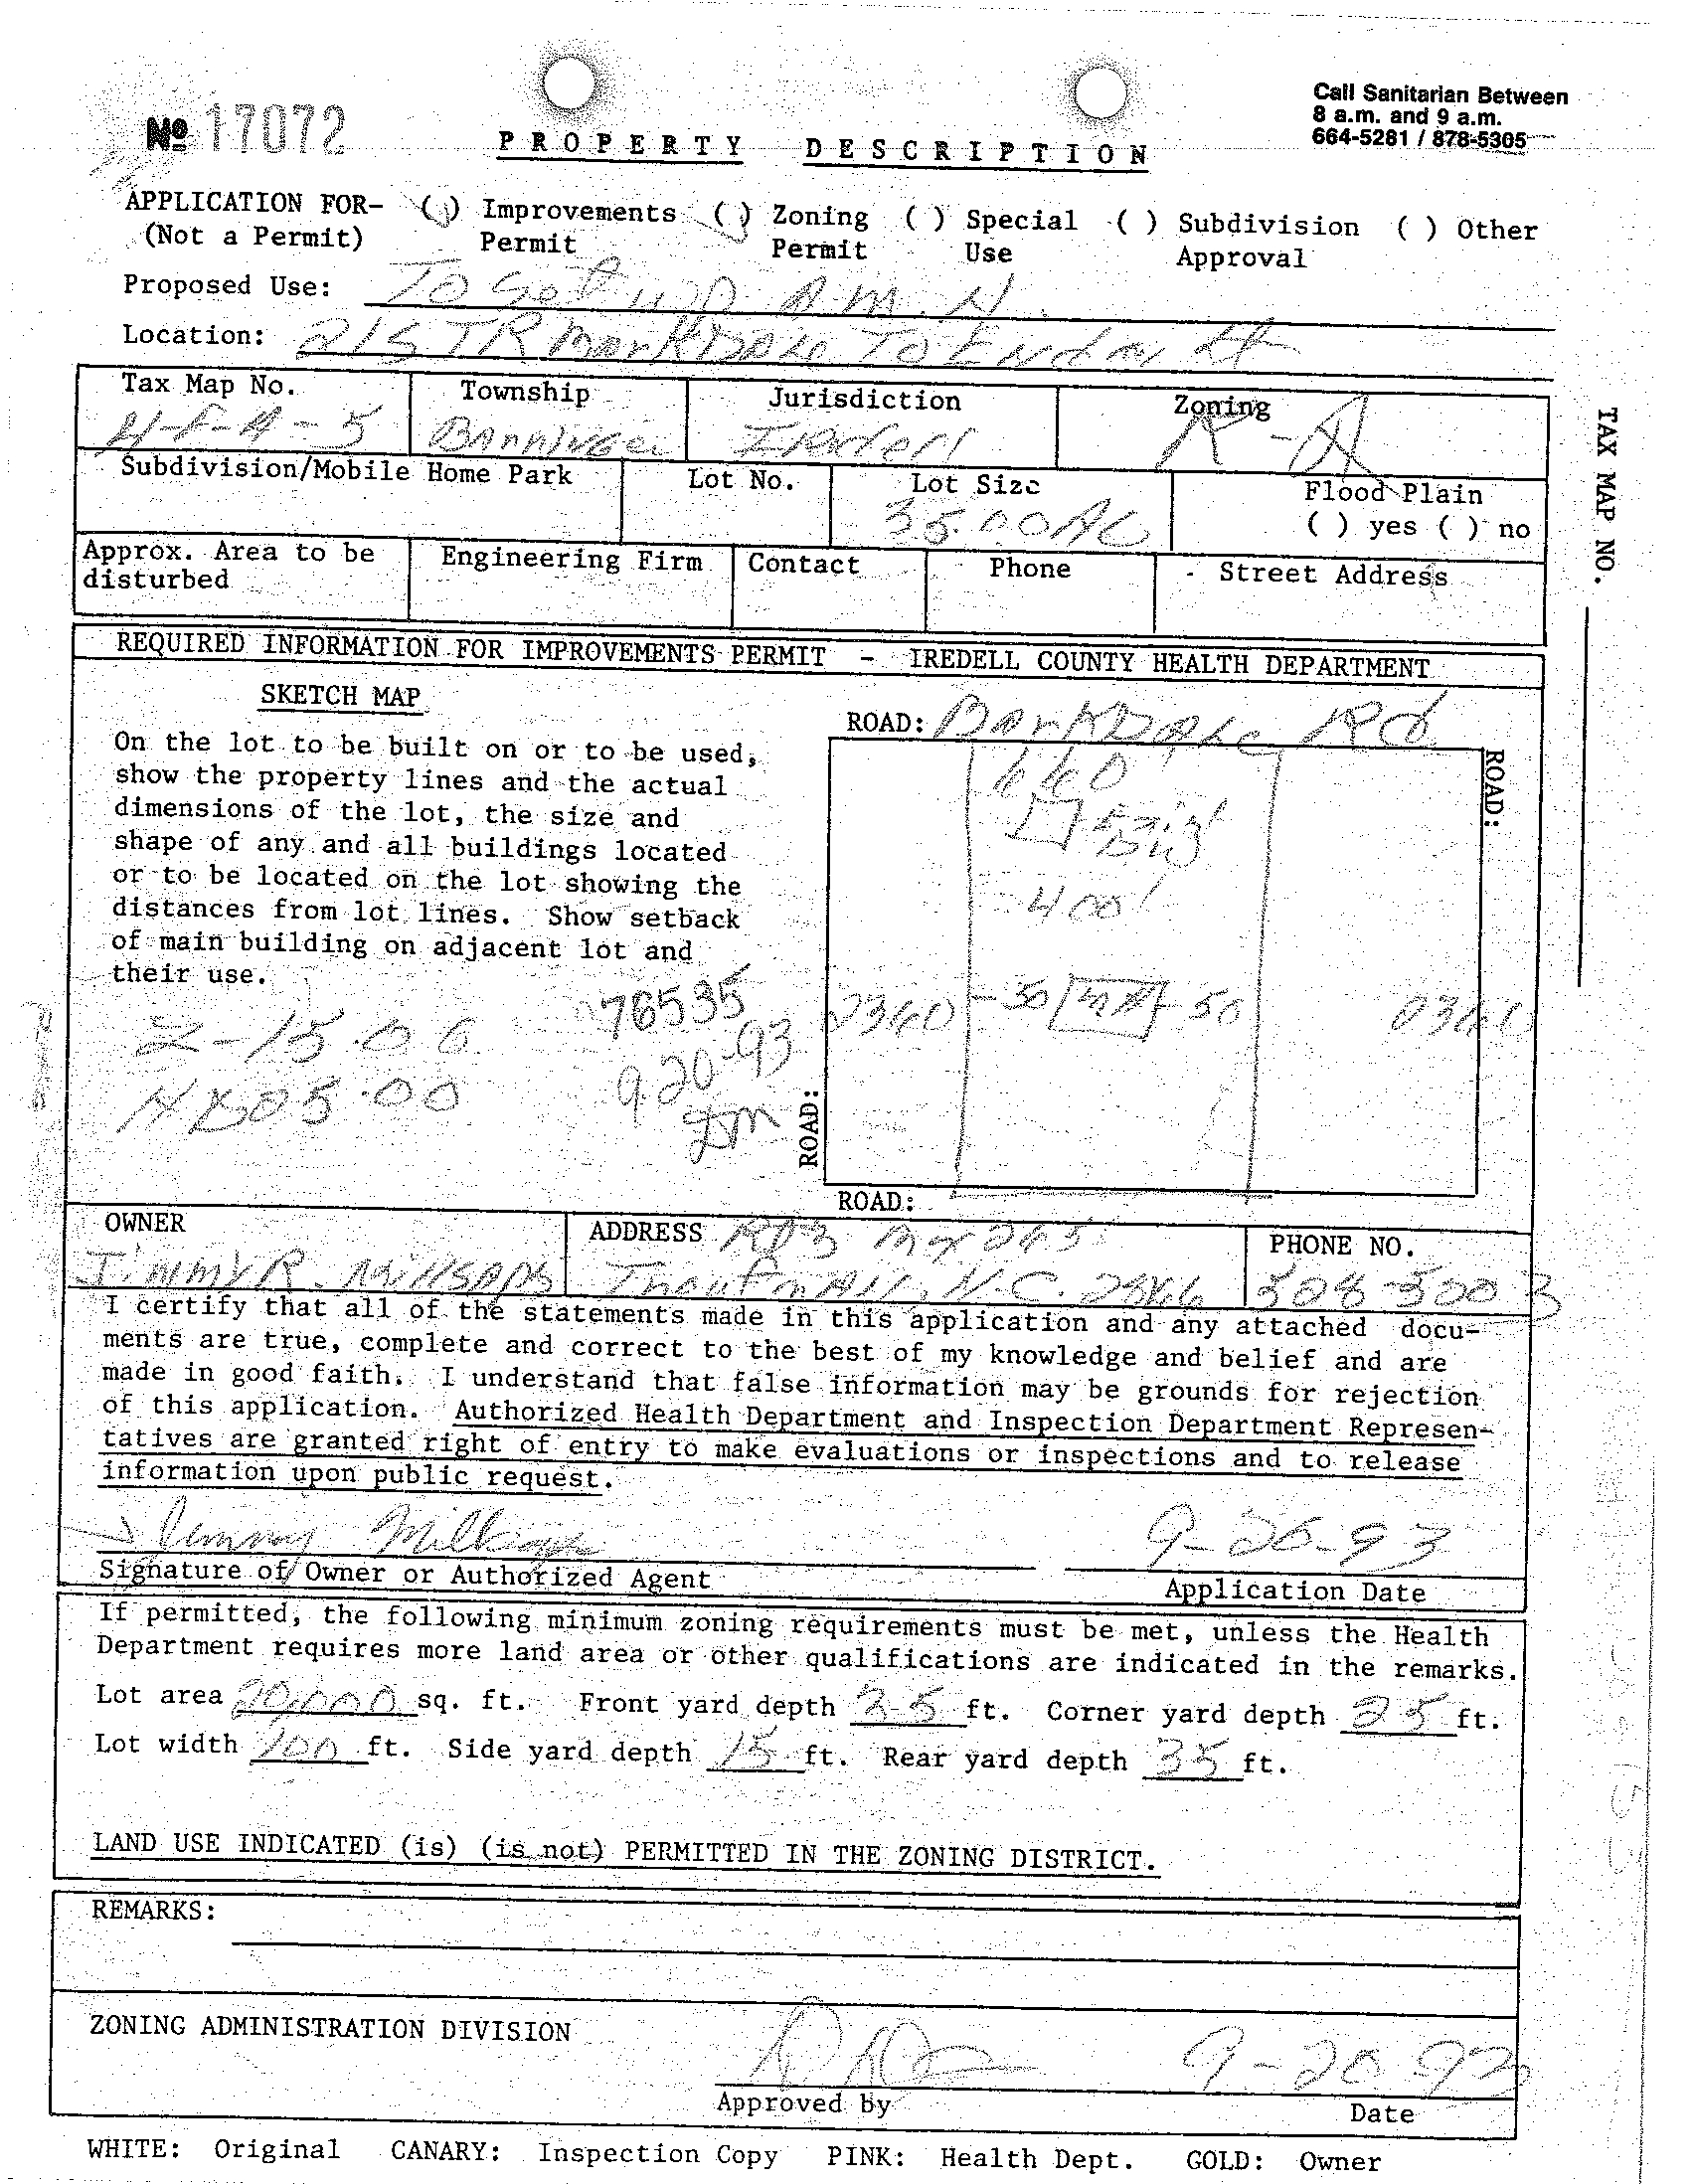 Call Sanitarian Between
8 a.m. and 9 a.m.
664-5281 / 878-5305
No 17072
PROPERTY DESCRIPTION
APPLICATION FOR- ( ) Improvements ( ) Zoning ( ) Special ( ) Subdivision ( ) Other
(Not a Permit) Permit Permit Use Approval
Proposed Use: To Set up A M.H.
Location: 21S TR To End
Tax Map No. Township Jurisdiction Zoning
4-F-A-5 Barringer Iredell R-A
Subdivision/Mobile Home Park Lot No. Lot Size Flood Plain
35.00 AC ( ) yes ( ) no
Approx. Area to be Engineering Firm Contact Phone Street Address
disturbed
TAX MAP NO.
REQUIRED INFORMATION FOR IMPROVEMENTS PERMIT - IREDELL COUNTY HEALTH DEPARTMENT
SKETCH MAP
On the lot to be built on or to be used,
show the property lines and the actual
dimensions of the lot, the size and
shape of any and all buildings located
or to be located on the lot showing the
distances from lot lines. Show setback
of main building on adjacent lot and
their use.
76535
9-20-93
ROAD: Rd
660
400'
50 MH 50
ROAD:
ROAD:
ROAD:
OWNER ADDRESS PHONE NO.
Jimmy R. Millsaps Troutman, N.C. 28166
I certify that all of the statements made in this application and any attached docu-
ments are true, complete and correct to the best of my knowledge and belief and are
made in good faith. I understand that false information may be grounds for rejection
of this application. Authorized Health Department and Inspection Department Represen-
tatives are granted right of entry to make evaluations or inspections and to release
information upon public request.
Jimmy Millsaps 9-20-93
Signature of Owner or Authorized Agent Application Date
If permitted, the following minimum zoning requirements must be met, unless the Health
Department requires more land area or other qualifications are indicated in the remarks.
Lot area 20,000 sq. ft. Front yard depth 25 ft. Corner yard depth 25 ft.
Lot width 100 ft. Side yard depth 15 ft. Rear yard depth 35 ft.
LAND USE INDICATED (is) (is not) PERMITTED IN THE ZONING DISTRICT.
REMARKS:
ZONING ADMINISTRATION DIVISION
9-20-93
Approved by Date
WHITE: Original CANARY: Inspection Copy PINK: Health Dept. GOLD: Owner